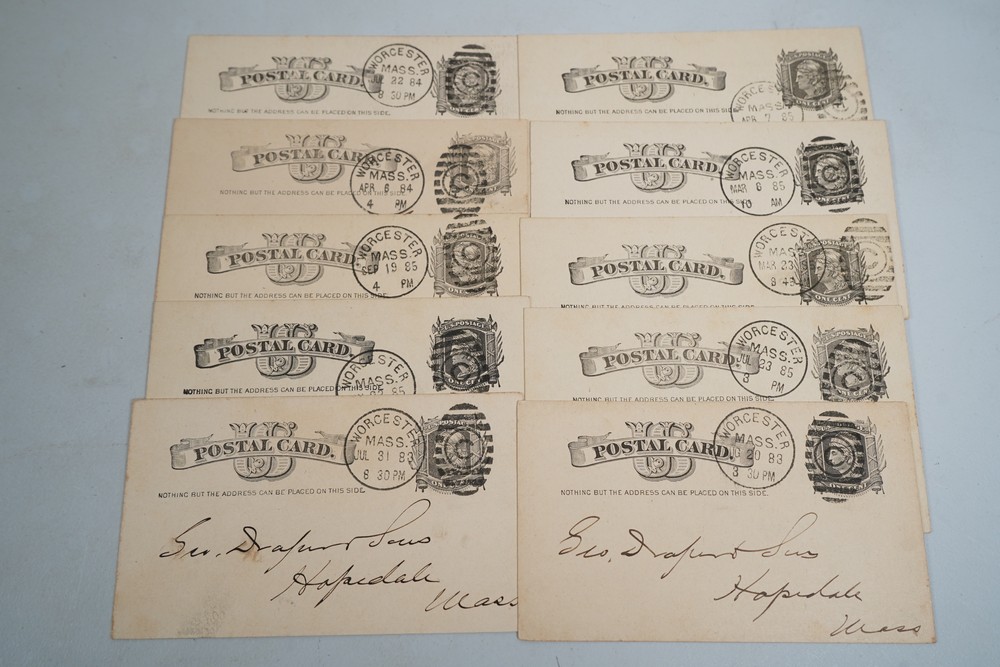 US
POSTAL CARD.
NOTHING BUT THE ADDRESS CAN BE PLACED ON THIS SIDE.
WORCESTER
MASS.
JUL 22 84
8 30 PM
C
US
POSTAL CARD.
NOTHING BUT THE ADDRESS CAN BE PLACED ON THIS SIDE.
MASS.
APR 7 85
ONE CENT
US
POSTAL CARD
NOTHING BUT THE ADDRESS CAN BE PLACED ON THIS SIDE
WORCESTER
MASS.
APR 6 84
4 PM
C
US
POSTAL CARD.
NOTHING BUT THE ADDRESS CAN BE PLACED ON THIS SIDE.
WORCESTER
MASS.
MAR 6 85
10 AM
C
US
POSTAL CARD
NOTHING BUT THE ADDRESS CAN BE PLACED ON THIS SIDE
WORCESTER
MASS.
SEP 19 85
4 PM
C
US
POSTAL CARD.
WORCESTER
MASS.
MAR 23
ONE CENT
US
POSTAL CARD.
NOTHING BUT THE ADDRESS CAN BE PLACED ON THIS SIDE
WORCESTER
MASS.
U.S. POSTAGE
ONE CENT
C
US
POSTAL CARD.
NOTHING BUT THE ADDRESS CAN BE PLACED ON THIS SIDE.
WORCESTER
MASS.
JUL 23 85
3 PM
C
US
POSTAL CARD.
NOTHING BUT THE ADDRESS CAN BE PLACED ON THIS SIDE.
WORCESTER
MASS.
JUL 31 83
8 30 PM
C
Geo. Draper & Sons
Hopedale
Mass
US
POSTAL CARD.
NOTHING BUT THE ADDRESS CAN BE PLACED ON THIS SIDE.
WORCESTER
MASS.
20 83
8 30 PM
Geo. Draper & Sons
Hopedale
Mass